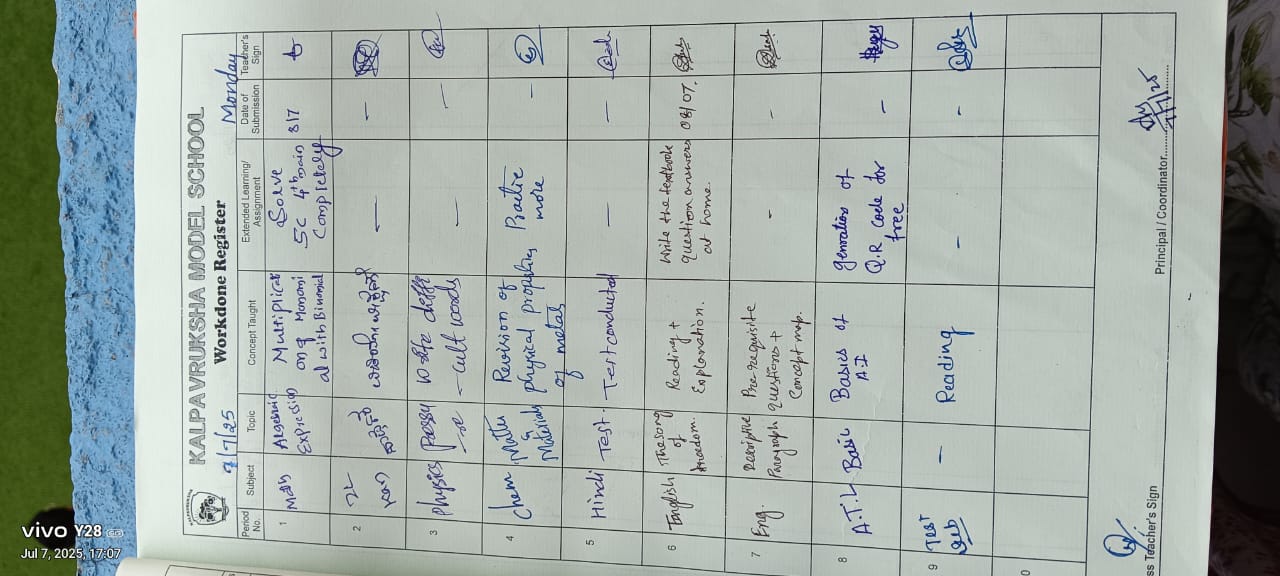 KALPAVRUKSHA MODEL SCHOOL
Workdone Register
7/7/25
Monday
Period No.
Subject
Topic
Concept Taught
Extended Learning/ Assignment
Date of Submission
Teacher's Sign
1
Math
Algebraic
Expression
Multiplicat
ion of Monomi
al with Binomial
Solve
5c 4th main
Completely
8/7
2
—
—
3
Physics
Pressu
-re
write diffi
-cult words
—
—
4
Chem
Matter
&
Materials
Revision of
physical properties
of metal
Practive
more
—
5
Hindi
Test.
Test conducted
—
—
6
English
The song
of
freedom.
Reading +
Explanation.
Write the textbook
question answers
at home.
08/07.
7
Eng.
Descriptive
Paragraph
Pre-requisite
questions +
Concept map.
-
-
8
A.T.L
Basic
Basics of
A.I
genration of
Q.R code for
free
–
9
Test
–
Reading
–
–
0
ss Teacher's Sign
Principal / Coordinator
vivo Y28 5G
Jul 7, 2025, 17:07